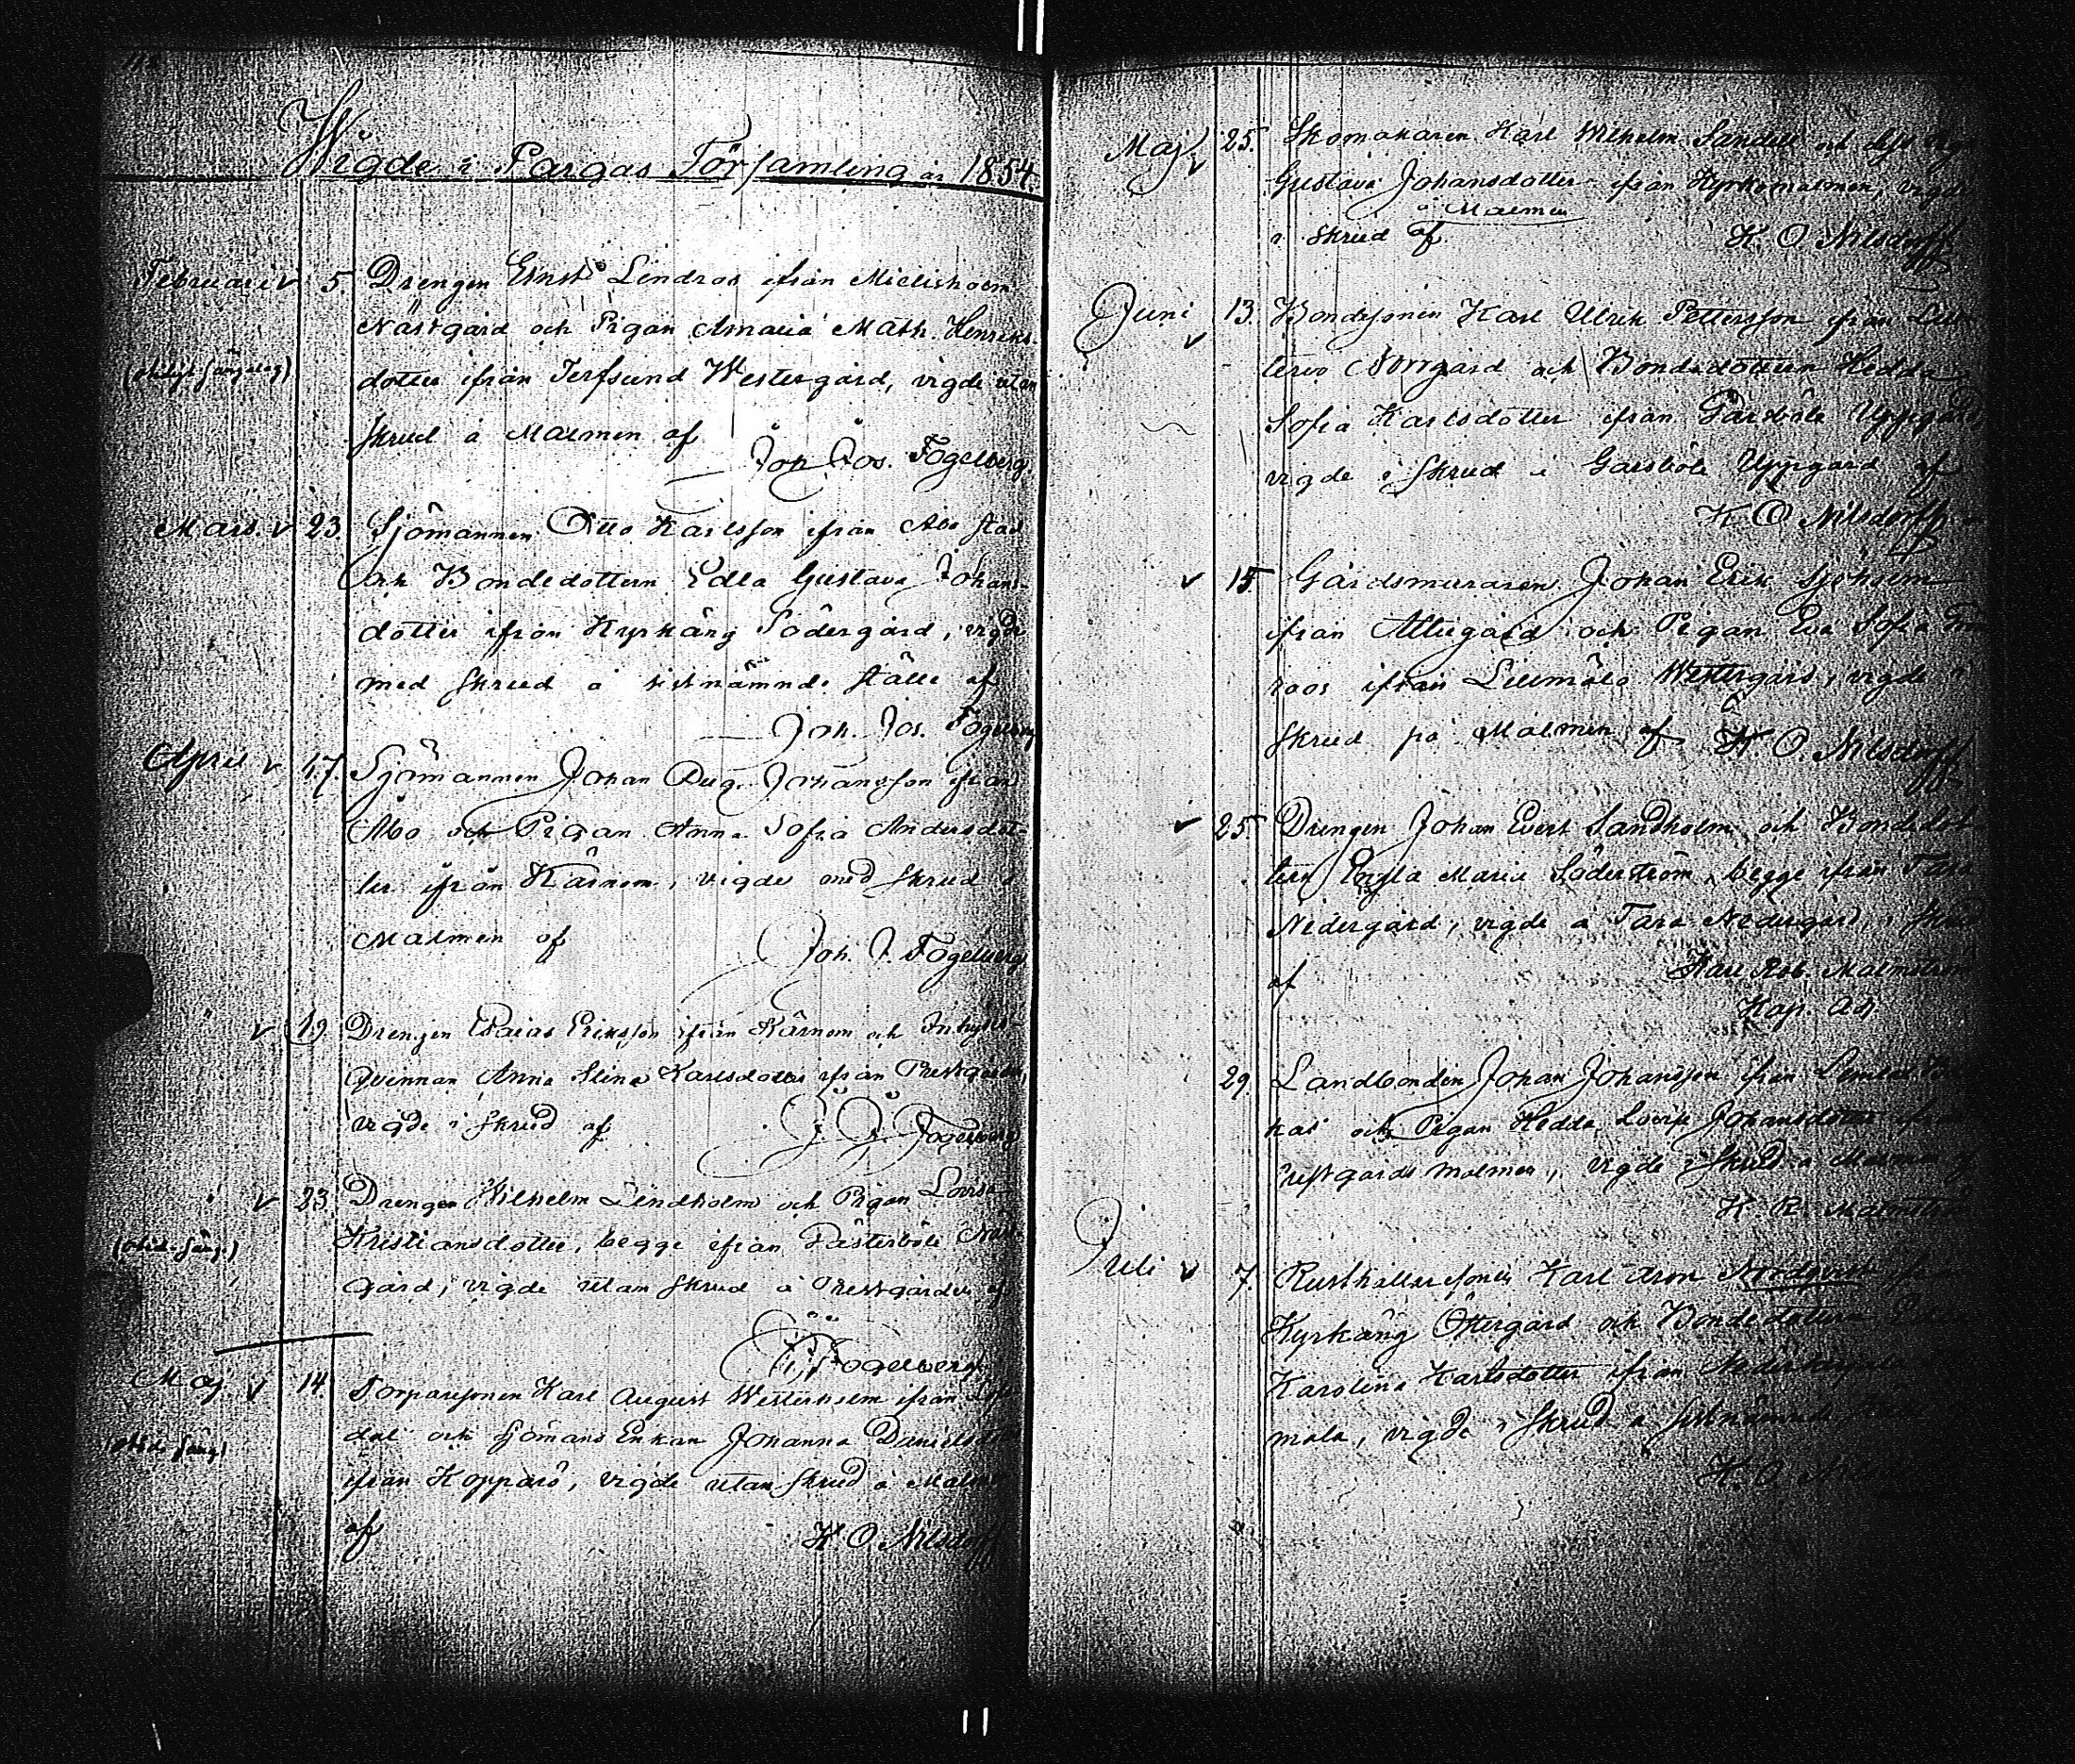 Wigde i Pargas Församling år 1854.
Februari v 5. Drengen Ernst Lindroos ifrån Mielisholm
Nästgård och Pigan Amalia Math. Henriks-
dotter ifrån Terfsund Westergård, vigde utan
skrud å Malmen af
Joh. Jos. Fogelberg
Mars. v 23. Sjömannen Otto Karlsson ifrån Åbo stad
och Bondedottern Edla Gustava Johans-
dotter ifrån Kyrkäng Södergård, vigde
med skrud å sistnämnde ställe af
Joh. Jos. Fogelberg
April v 17. Sjömannen Johan Aug. Johansson ifrån
Åbo och Pigan Anna Sofia Andersdot-
ter ifrån Kårnom, vigde med skrud å
Malmen af
Joh. J. Fogelberg
v 19 Drengen Esaias Eriksson ifrån Kårnom och Inhyses-
qvinnan Anna Stina Karlsdotter ifrån Prestgården,
vigde i skrud af
J. J. Fogelberg
v 23. Drengen Wilhelm Lindholm och Pigan Lovisa
Kristiansdotter, begge ifrån
gård, vigde utan skrud å Prestgården af
J. J. Fogelberg
Maj. v 14. Torparesonen Karl August Westerholm ifrån
dal och sjömans Enkan Johanna
ifrån Kopparö, vigde utan skrud å
af
K O Nilsdorff
Maj v 25. Skomakaren Karl Wilhelm Sandell och
Gustava Johansdotter ifrån Kyrkomalmen, vigde
å Malmen
i skrud af
K O Nilsdorff
Juni v 13. Bondesonen Karl Ulrik Pettersson ifrån
Norrgård och Bondedottern Hedda
Sofia Karlsdotter ifrån Garsböle Uppgård,
vigde i skrud i Garsböle Uppgård af
K O Nilsdorff
v 15. Gårdsmuraren Johan Erik Sjöholm
ifrån Attugård och Pigan Eva Sofia
roos ifrån Lillmälö Westergård, vigde i
skrud på Malmen af K O. Nilsdorff
v 25. Drengen Johan Evert Sandholm och Bondedot-
tern Engla Maria Söderström, begge ifrån Tara
Nedergård, vigde å Tara Nedergård, i skrud
af
Karl Rob. Malmström
Kap. Adj.
29. Landbonden Johan Johansson ifrån
och Pigan Hedda Lovisa Johansdotter
malmen, vigde i skrud å Malmen
K. R. Malmström
Juli v 7. Rusthållaresonen Karl Aron Nordqvist ifrån
Kyrkäng Östergård och Bondedottern
Karolina Karlsdotter ifrån
mala, vigde i skrud å sistnämnde
K. O.